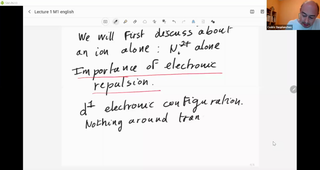 Lecture 1 M1 english
We will First discuss about
an ion alone : Ni2+ alone
Importance of electronic
repulsion.
d1 electronic configuration.
Nothing around tran